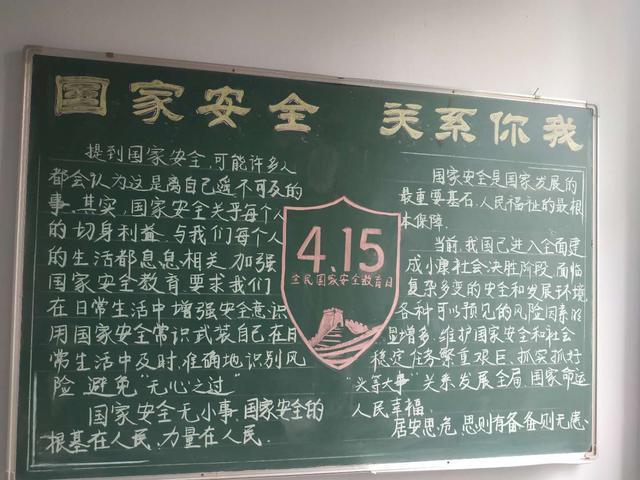 国家安全 关系你我
提到国家安全,可能许多人
都会认为这是离自己遥不可及的
事,其实,国家安全关乎每个人
的切身利益,与我们每个人
的生活都息息相关,加强
国家安全教育要求我们
在日常生活中增强安全意识
用国家安全常识武装自己在日
常生活中及时,准确地识别风
险,避免“无心之过”
国家安全无小事,国家安全的
根基在人民,力量在人民.
4.15
全民国家安全教育日
国家安全是国家发展的
最重要基石,人民福祉的最根
本保障.
当前,我国已进入全面建
成小康社会决胜阶段,面临
复杂多变的安全和发展环境,
各种可以预见的风险因素明
显增多,维护国家安全和社会
稳定任务繁重艰巨、抓实抓好
“头等大事”关系发展全局,国家命运
人民幸福.
居安思危,思则有备,备则无患.